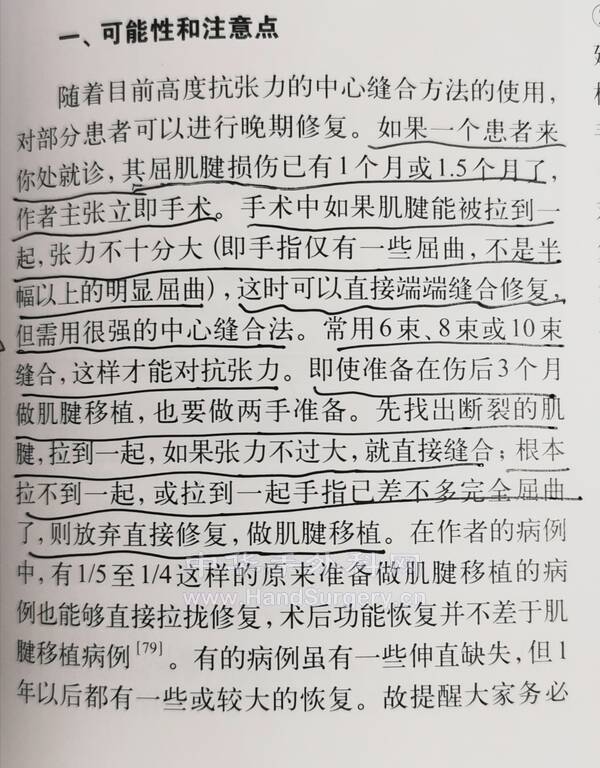 一、可能性和注意点
随着目前高度抗张力的中心缝合方法的使用，
对部分患者可以进行晚期修复。如果一个患者来
你处就诊，其屈肌腱损伤已有1个月或1.5个月了，
作者主张立即手术。手术中如果肌腱能被拉到一
起，张力不十分大（即手指仅有一些屈曲，不是半
幅以上的明显屈曲），这时可以直接端端缝合修复，
但需用很强的中心缝合法。常用6束、8束或10束
缝合，这样才能对抗张力。即使准备在伤后3个月
做肌腱移植，也要做两手准备。先找出断裂的肌
腱，拉到一起，如果张力不过大，就直接缝合；根本
拉不到一起，或拉到一起手指已差不多完全屈曲
了，则放弃直接修复，做肌腱移植。在作者的病例
中，有1/5至1/4这样的原来准备做肌腱移植的病
例也能够直接拉拢修复，术后功能恢复并不差于肌
腱移植病例[79]。有的病例虽有一些伸直缺失，但1
年以后都有一些或较大的恢复。故提醒大家务必
中华手外科网
www.HandSurgery.cn